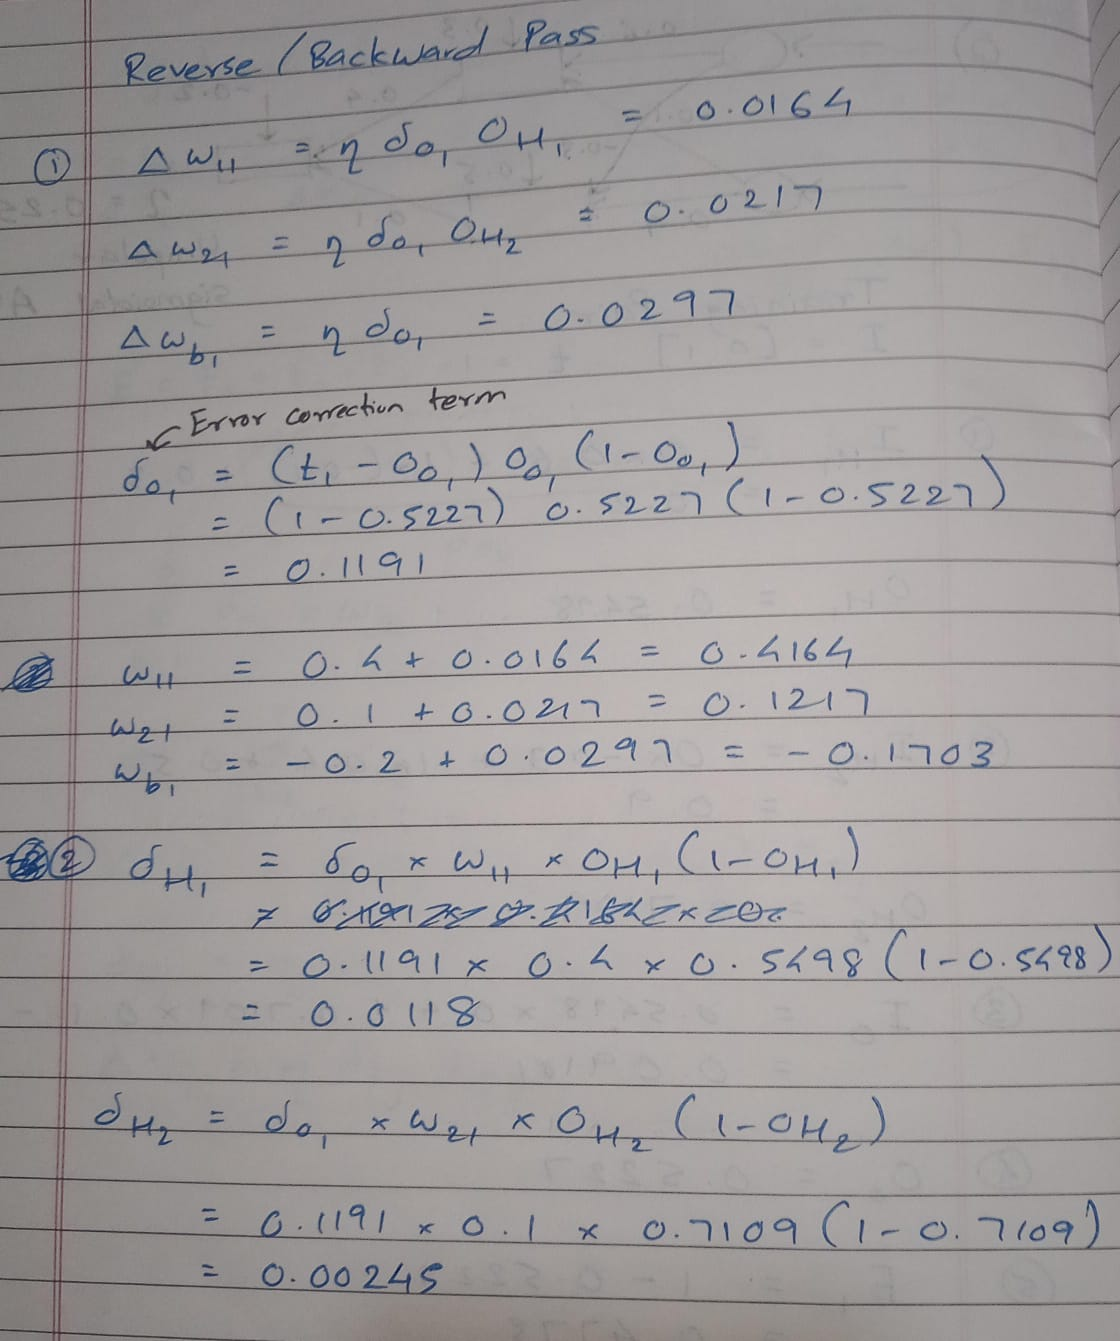 Reverse / Backward Pass
① Δw₁₁ = η δo₁ OH₁ = 0.0164
Δw₂₁ = η δo₁ OH₂ = 0.0217
Δw_b₁ = η δo₁ = 0.0297
Error correction term
δo₁ = (t₁ - Oo₁) Oo₁ (1-Oo₁)
= (1-0.5227) 0.5227 (1-0.5227)
= 0.1191
w₁₁ = 0.4 + 0.0164 = 0.4164
w₂₁ = 0.1 + 0.0217 = 0.1217
w_b₁ = -0.2 + 0.0297 = -0.1703
② δH₁ = δo₁ × w₁₁ × OH₁ (1-OH₁)
= 0.1191 × 0.4 × 0.5498 (1-0.5498)
= 0.0118
δH₂ = δo₁ × w₂₁ × OH₂ (1-OH₂)
= 0.1191 × 0.1 × 0.7109 (1-0.7109)
= 0.00245